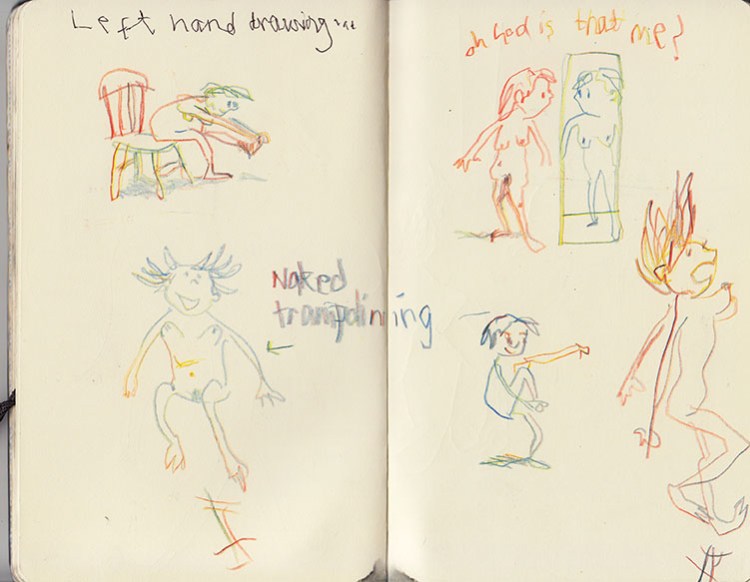 Left hand drawing...
oh God is that me?
Naked
trampolining